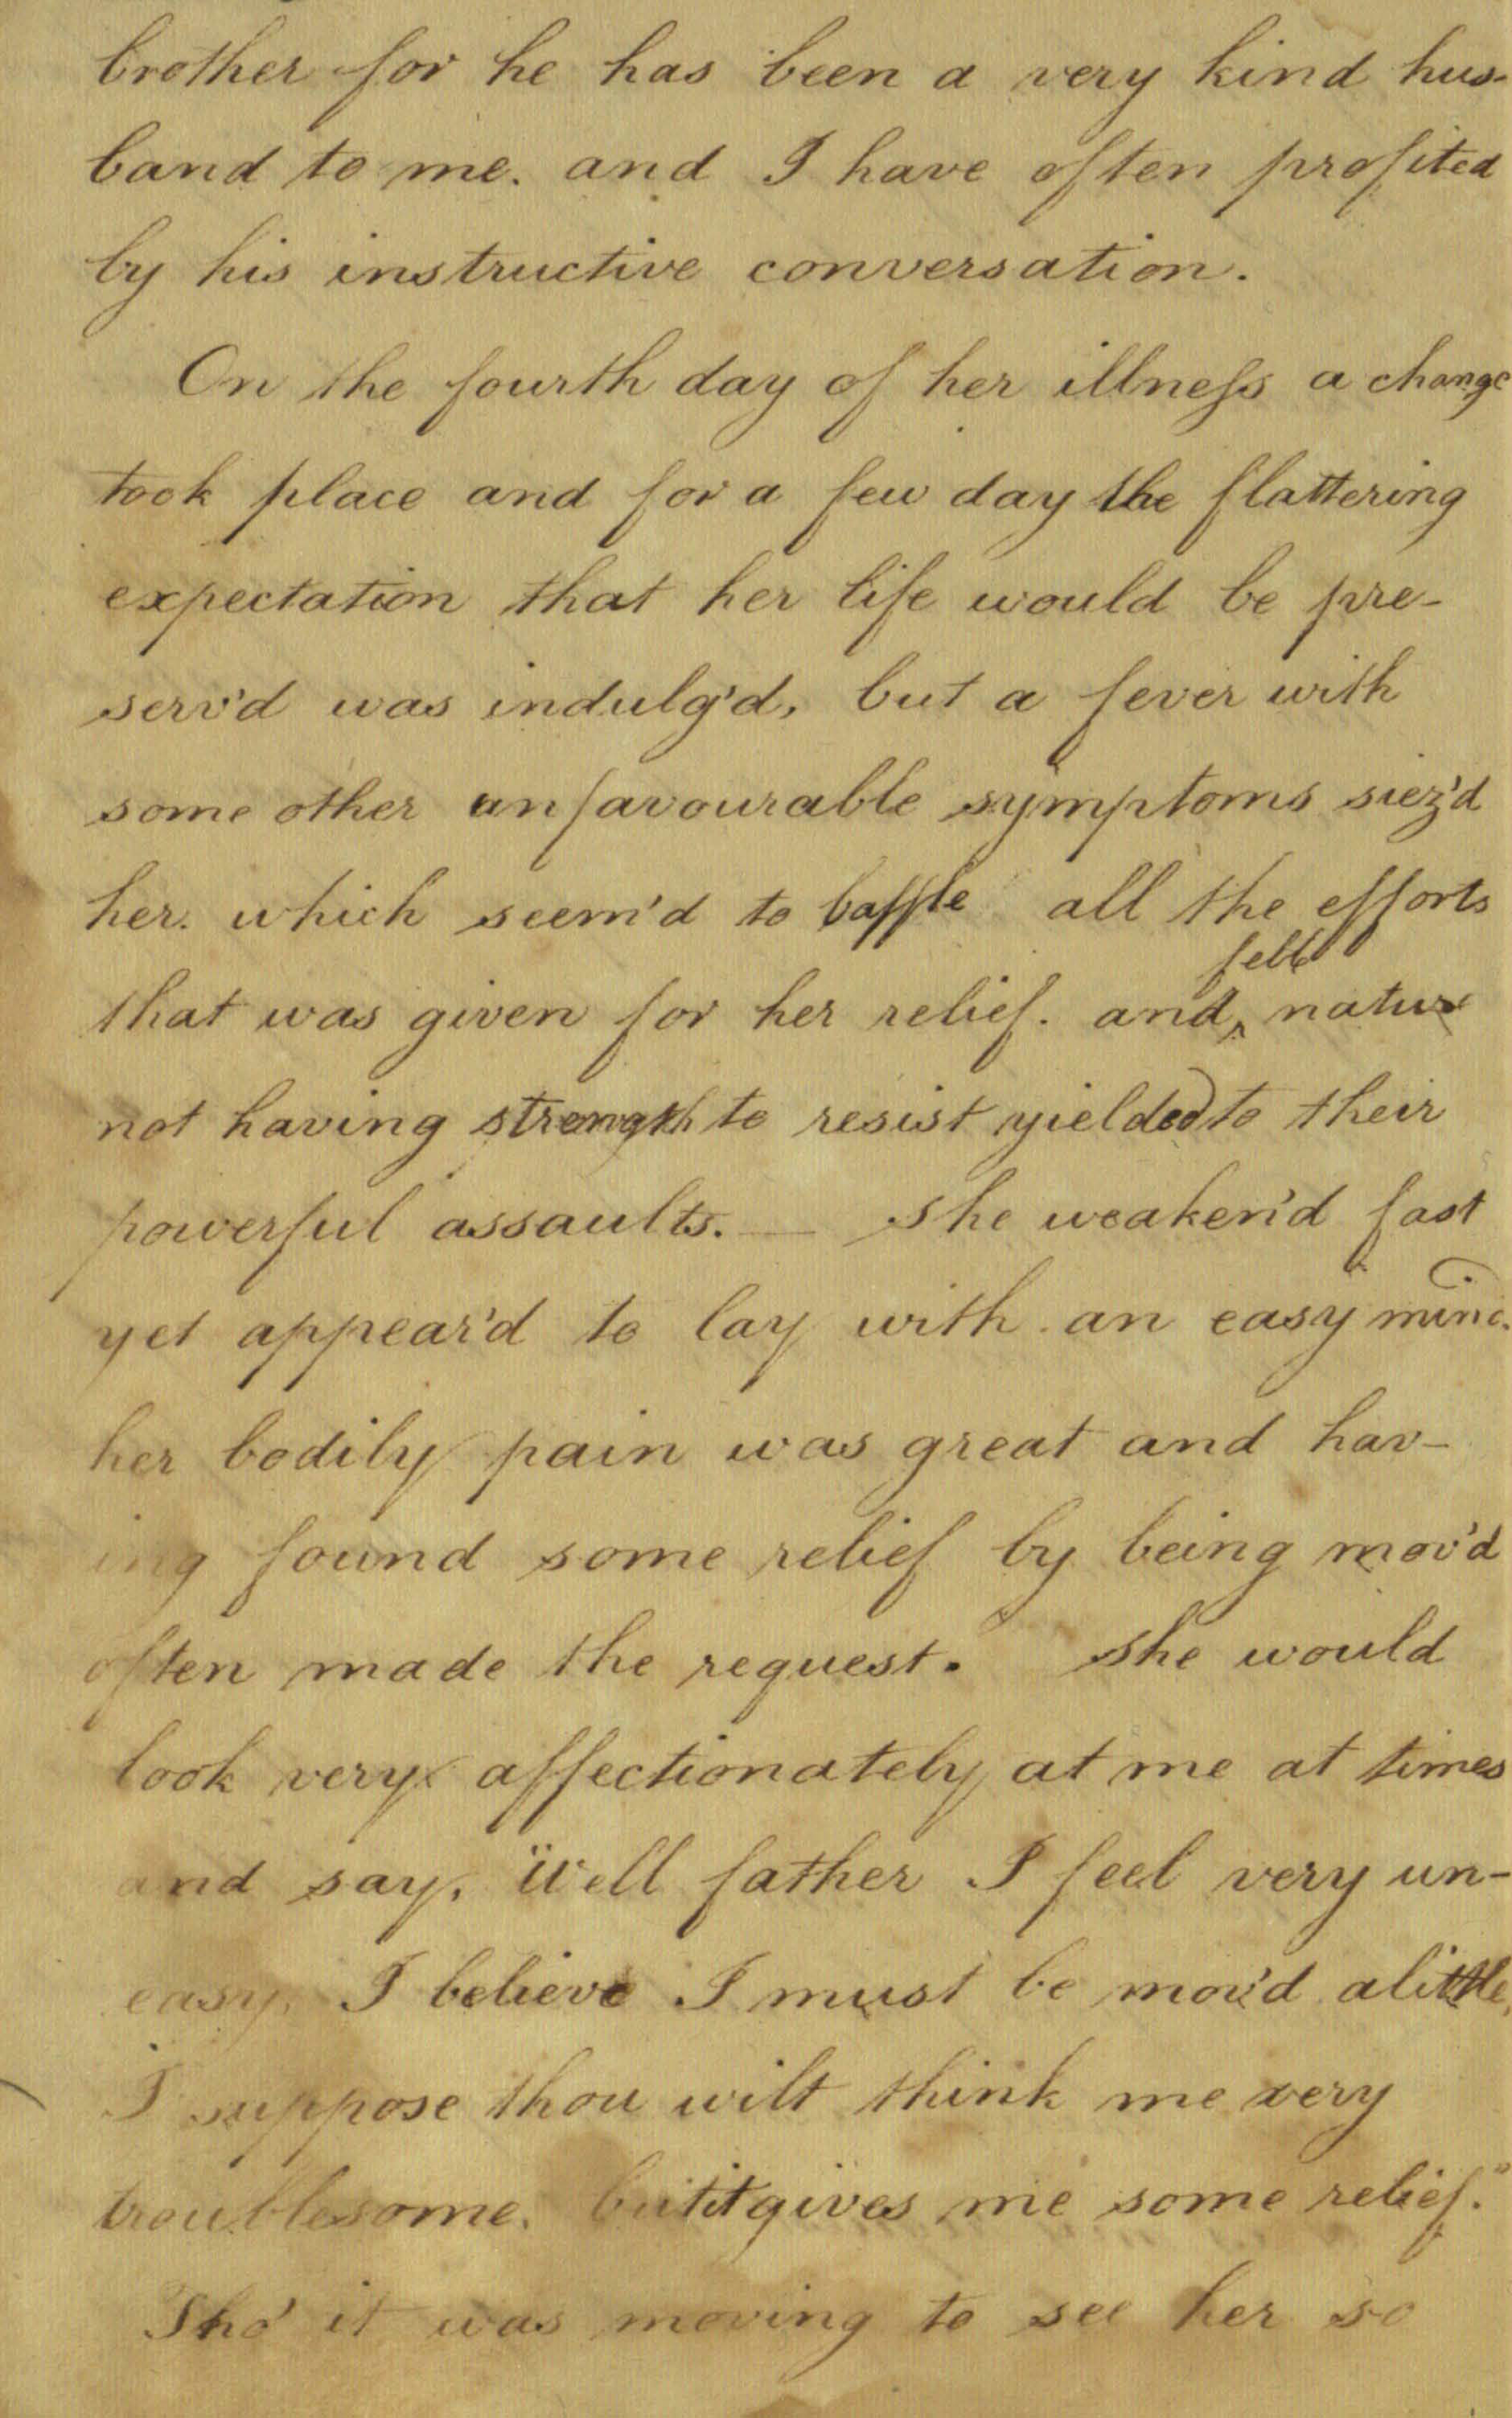 brother for he has been a very kind hus-
band to me. and I have often profited
by his instructive conversation.
On the fourth day of her illneſs a change
took place and for a few day the flattering
expectation that her life would be pre-
serv'd was indulg'd, but a fever with
some other unfavourable symptoms siez'd
her. which seem'd to baffle all the efforts
fell
that was given for her relief. and ‸ nature
not having strength to resist yielded to their
powerful assaults. — She weaken'd fast
yet appear'd to lay with an easy mind.
her bodily pain was great and hav-
ing found some relief by being mov'd
often made the request. She would
look very affectionately at me at times
and say, "Well father I feel very un-
easy, I believe I must be mov'd a little,
I suppose thou wilt think me very
troublesome. but it gives me some relief."
Tho' it was moving to see her so